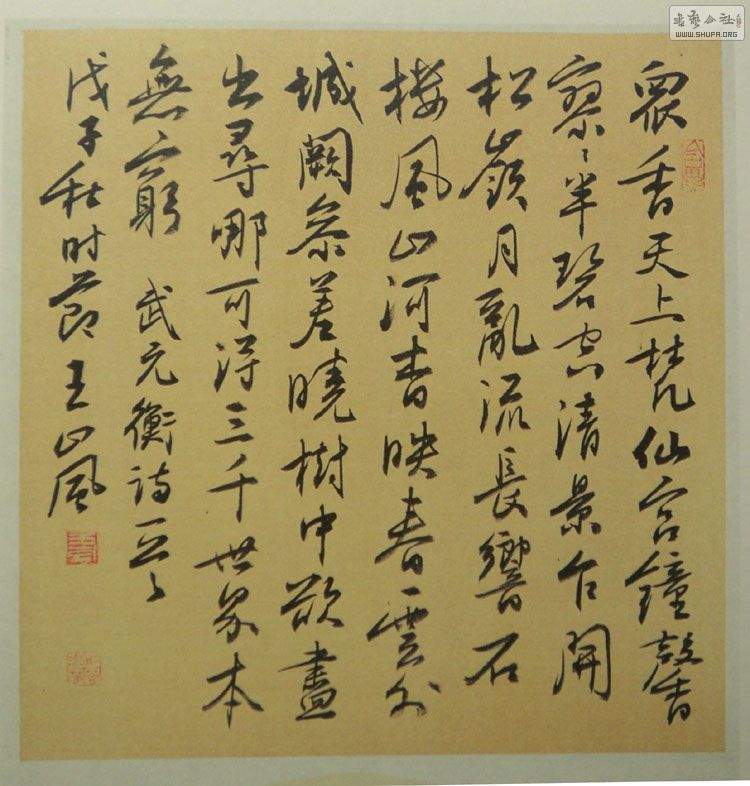 書藝公社
WWW.SHUFA.ORG
眾香天上梵仙宮鐘馨
寥々半碧空清景乍開
松嶺月亂流長響石
樓風山河杳映春雲外
城闕叅差曉樹中欲盡
出尋哪可得三千世界本
無窮 武元衡詩一首
戊子秋时節王山風